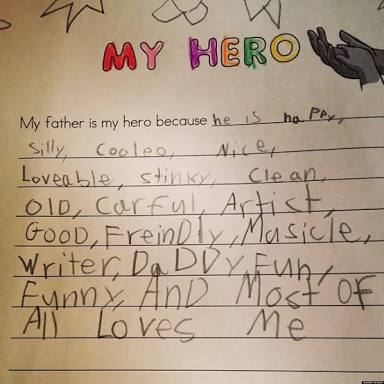 MY HERO
My father is my hero because he is happy,
Silly, Cooleo, Nice,
Loveable, stinky, clean,
OlD, Carful, Artist,
GooD, FreinDly, Musicle,
Writer, DaDDy, Fun,
Funny, AnD Most OF
All Loves Me